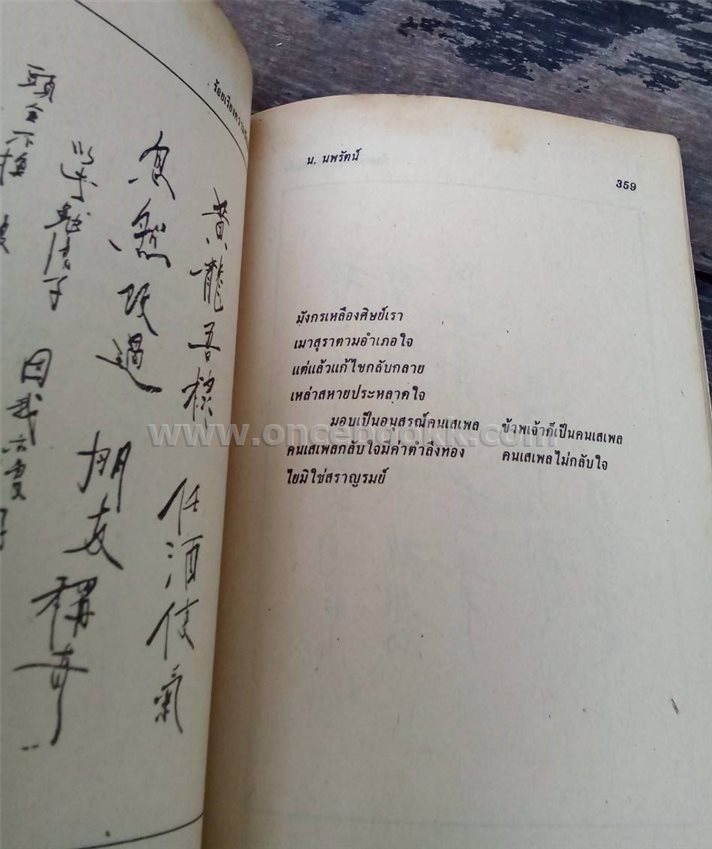 黄龍吾 任酒使氣
忽然改過 朋友稱奇
子 因我亦
頭金不換
น. นพรัตน์
359
มังกรเหลืองศิษย์เรา
เมาสุราตามอำเภอใจ
แต่แล้วแก้ไขกลับกลาย
เหล่าสหายประหลาดใจ
มอบเป็นอนุสรณ์คนเสเพล ข้าพเจ้าก็เป็นคนเสเพล
คนเสเพลกลับใจมีค่าตำลึงทอง คนเสเพลไม่กลับใจ
ไยมิใช่สราญรมย์
www.oncebookk.com